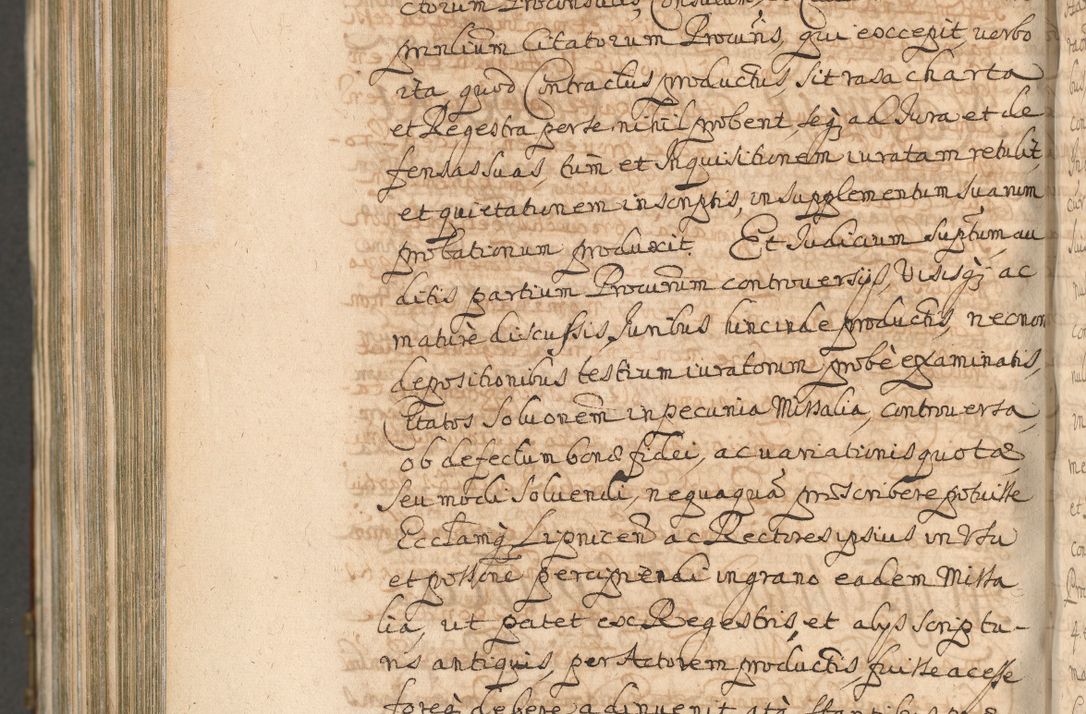 ctorum Proconsulis, Consulum, et
pnnlium Citatorum Procuris, qui excepit, verbo
ita quod Contractus productus, sit rasa charta
et Regestra per se nihil probent, seq3 ad Jura et de
fensas suas, tum et Inquisitionem iuratam retulit,
et quietationem in scriptis, in supplementum suarum
probationum produxit. Et Judicium suptum, au
ditis partium Procurum controversijs, Visisq3 ac
mature discussis, Juribus hincinde productis, necnon
depositionibus testium iuratorum, probè examinatis,
Citatos Soluonem in pecunia Missalia, controversa
ob defectum bonae fidei, ac variationis quotae
seu modi Solvendi, nequaquā prscribere potuisse
Eccliamq Lipnicen ac Rectores ipsius in Usu
et possone percipiendi in grano eadem Missa
lia, ut patet ex Regestris, et alijs scriptu-
ris antiquis, per Actorem productis, fuisse ac esse
foreq debere adinvenit atq